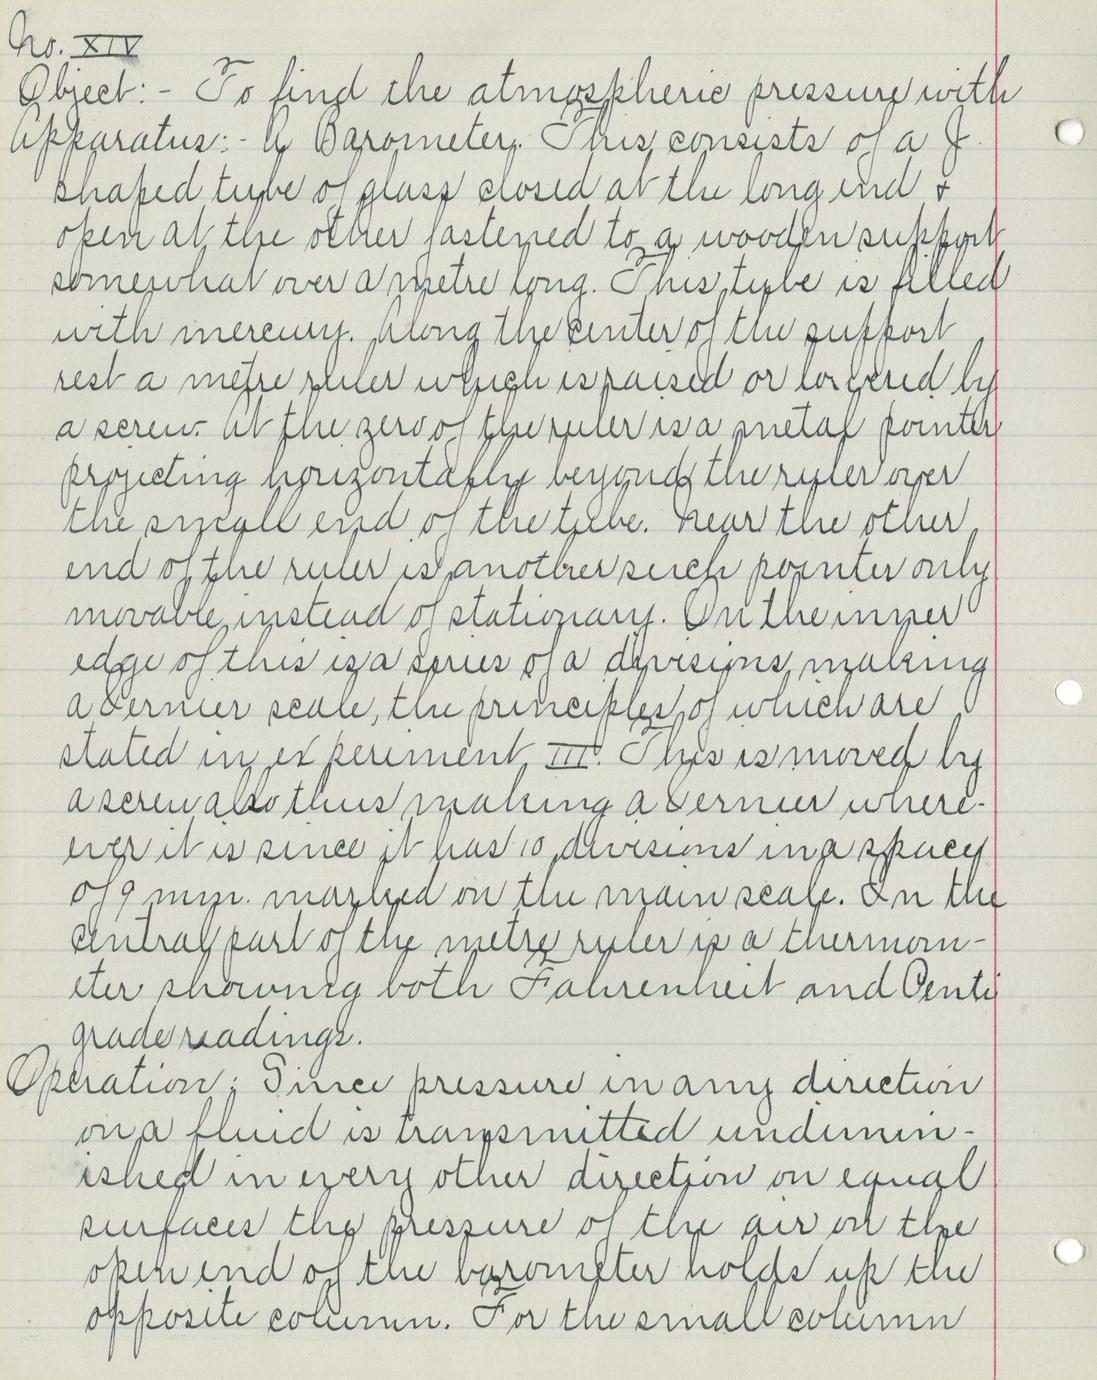 No. XIV
Object:- To find the atmospheric pressure with
Apparatus:- A Barometer. This consists of a J.
shaped tube of glass closed at the long end &
open at the other fastened to a wooden support
somewhat over a metre long. This tube is filled
with mercury. Along the center of the support
rest a metre ruler which is raised or lowered by
a screw. At the zero of the ruler is a metal pointer
projecting horizontally beyond the ruler over
the small end of the tube. Near the other
end of the ruler is another such pointer only
movable instead of stationary. On the inner
edge of this is a series of a divisions making
a Vernier scale, the principles of which are
stated in experiment III. This is moved by
a screw also thus making a Vernier where-
ever it is since it has 10 divisions in a space
of 9 mm. marked on the main scale. In the
central part of the metre ruler is a thermom-
eter showing both Fahrenheit and Centi
grade readings.
Operation; Since pressure in any direction
on a fluid is transmitted undimin-
ished in every other direction on equal
surfaces the pressure of the air on the
open end of the barometer holds up the
opposite column. For the small column